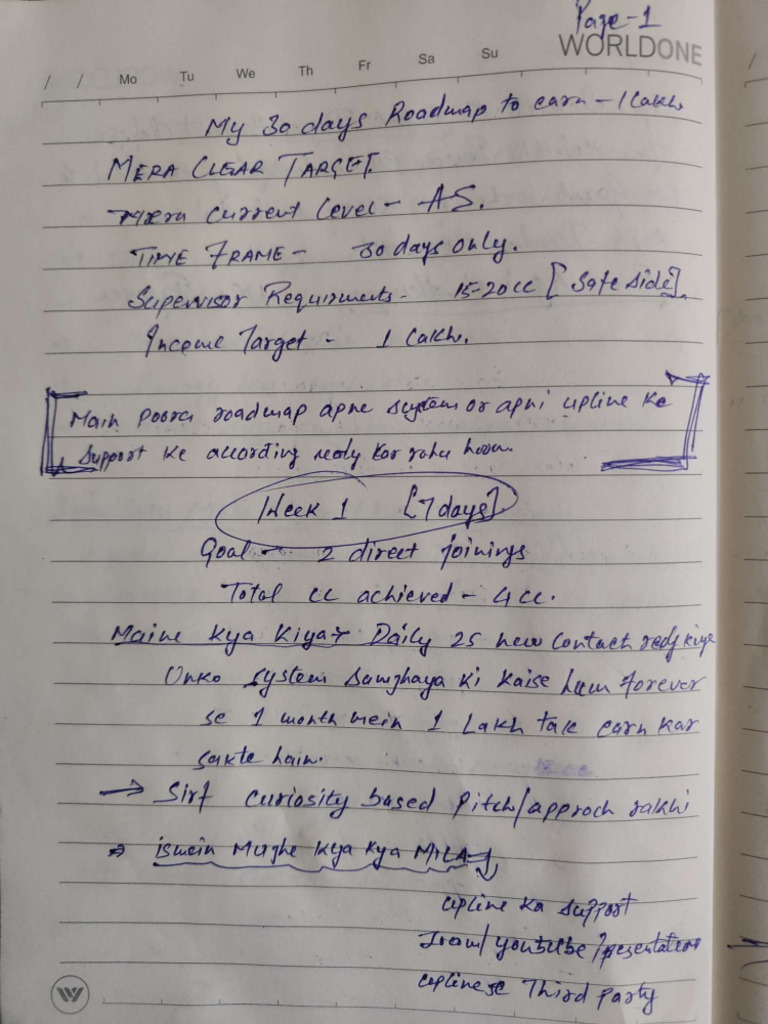 Page-1
WORLDONE
/ / Mo Tu We Th Fr Sa Su
My 30 days Roadmap to earn - 1 Lakh
MERA CLEAR TARGET.
Mera Current Level - AS.
TIME FRAME - 30 days only.
Supervisor Requirments - 15-20cc [Safe side].
Income Target - 1 Lakh.
Main poora roadmap apne system or apni upline ke
support ke according ready kar raha hoon.
Week 1 [7 days]
Goal - 2 direct joinings
Total cc achieved - 4cc.
Maine kya kiya → Daily 25 new contact ready kiye
Unko system samjhaya ki kaise hum forever
se 1 month mein 1 Lakh tak earn kar
sakte hain.
→ Sirf curiosity based pitch/approch rakhi
⇒ ismein Mujhe kya kya MILA
upline ka support
/youtube/presentation
upline se Third party
W